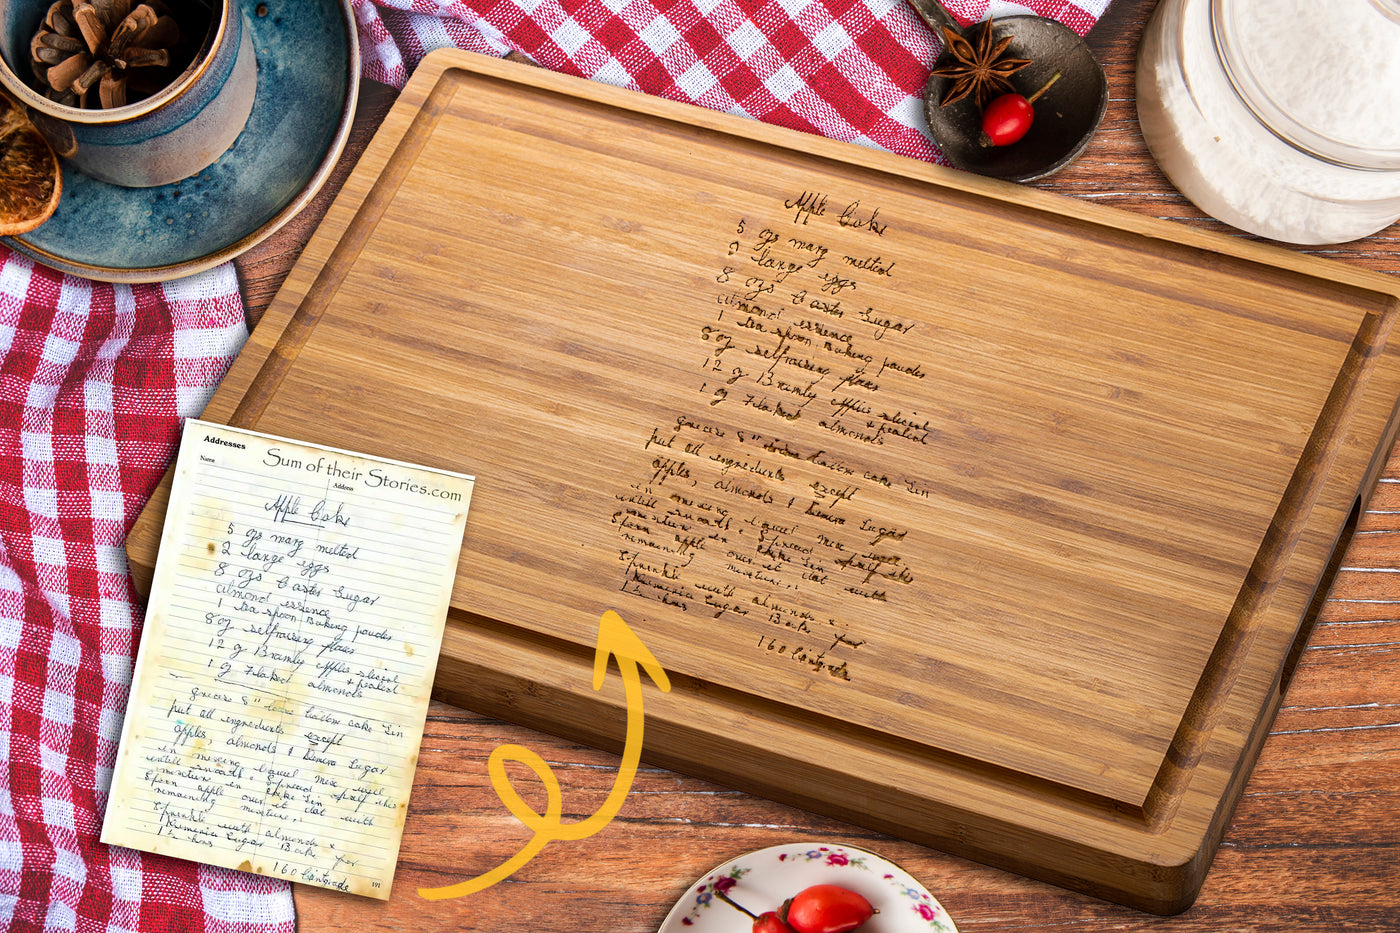 Apple Cake
5 ozs marg melted
2 large eggs
8 ozs Caster Sugar
almond essence
1 tea spoon Baking powder
8 oz selfraising flour
12 oz Bramly apples sliced
& peeled
1 oz Flaked almonds
grease 8" loose bottom cake tin
put all ingredients except
apples, almonds & Sugar
in mixing bowel mix well
untill smooth. Spread half this
mixture in cake tin
Spoon apple over it dot with
remaining mixture.
Sprinkle with almonds &
Sugar Bake for
1½ hrs
160 Centigrade
Addresses
Name
Address
Sum of their Stories.com
Apple Cake
5 ozs marg melted
2 large eggs
8 ozs Caster Sugar
almond essence
1 tea spoon Baking powder
8 oz selfraising flour
12 oz Bramly apples sliced
& peeled
1 oz Flaked almonds
grease 8" loose bottom cake tin
put all ingredients except
apples, almonds & Sugar
in mixing bowel mix well
untill smooth. Spread half this
mixture in cake tin
Spoon apple over it dot with
remaining mixture.
Sprinkle with almonds &
Sugar Bake for
1½ hrs
160 Centigrade
191